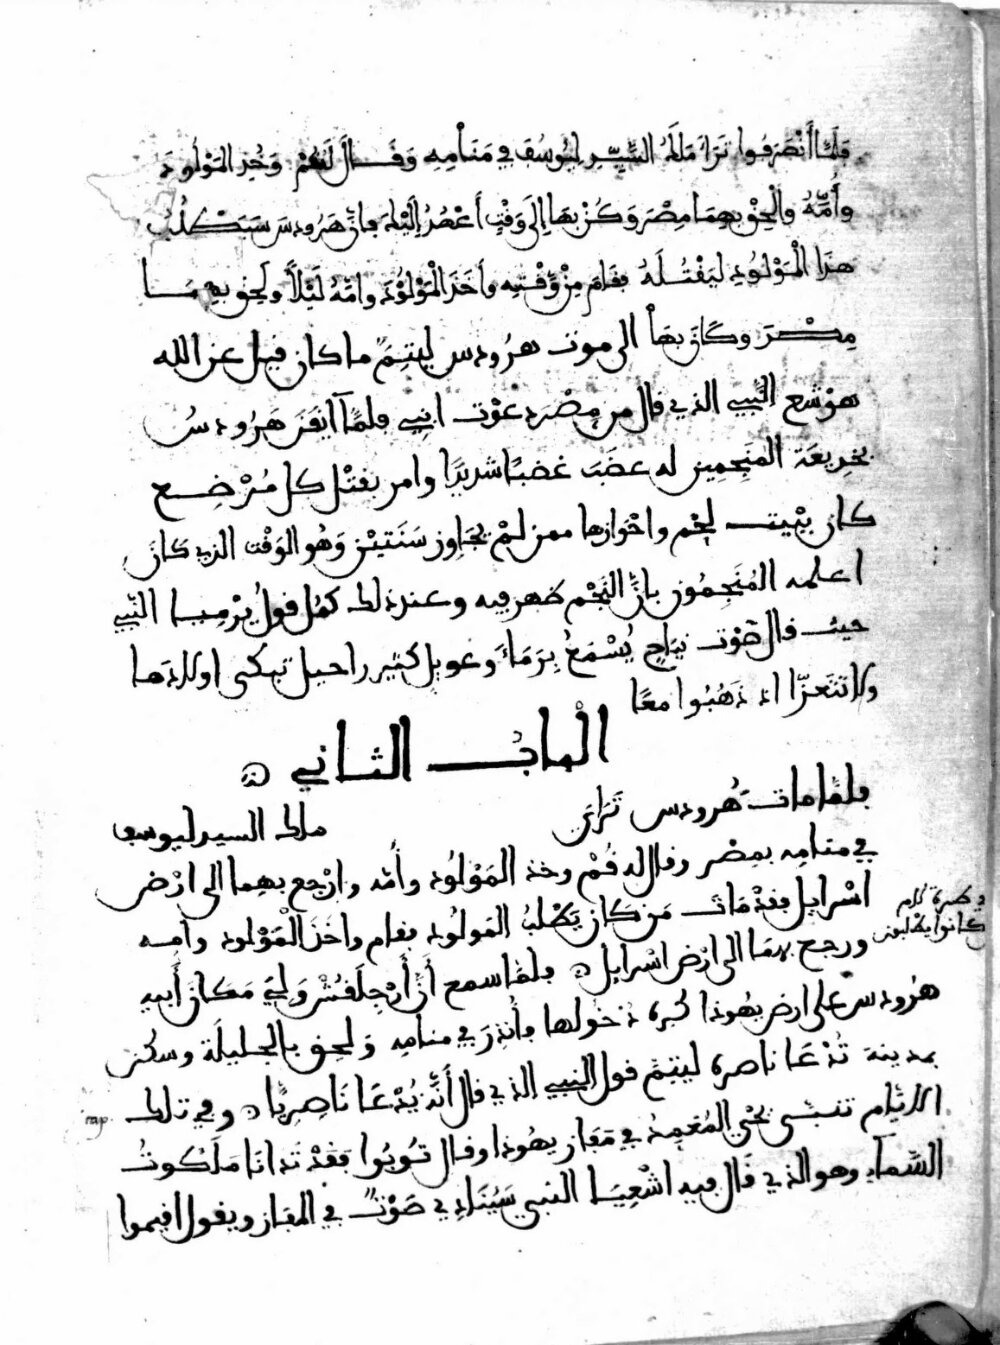 فلما انْصَرَفُوا تَرَاءَ مَلَكُ السَّيِّدِ لِيُوسُفَ في مَنَامِهِ وَقَالَ لَهُ قُمْ وَخُذِ المَوْلُودَ
وأُمَّهُ والْحِقْ بِهِمَا مِصْرَ وَكُنْ بِهَا إلى وَقْتِ أعْهَدُ إِلَيْكَ فَإِنَّ هَرُودِسَ سَيَطْلُبُ
هذا الْمَوْلُودِ لِيَقْتُلَهُ فقام مِنْ وَقْتِهِ وأَخَذَ الْمَوْلُودَ وامَّهُ لَيْلاً ولحق بهما
مِصْرَ وكَانَ بِهَا الى موت هرُودس ليتِمَّ ما كان قيل عن الله
هوْشع النَّبِي الذي قال من مِصْرَ دعوْت ابني فلمَّا أيقن هَرُودسُ
بخَدِيعَة المنَجِمِين له غضب غضبًا شديدًا وامر بقتْل كل مُرْضِع
كان ببيْت لحْم واحْوازها ممن لمْ يجَاوِز سَنَتيْن وَهُو الوَقْت الذي كان
اعلمه المُنَجِمُون بانَّ النجْم ظهر فيه وعند ذلك كمُل قولُ يرْمِيا النّبي
حيث قال صَوْت نِيَاحٍ يُسْمَعُ بِرَمَاءَ وعويل كثير راحيل تبكى اولادها
ولا تتعزّا اذ ذهبُوا معًا
الْبابُ الثاني
فلمّا مات هُرودس تَرَاءَى ملك السيد ليوسف
في منامه بمِصْر وقال له قُمْ وخذ المَوْلُود وأُمّه وارْجع بهما الى ارْض
اسْرايل فقدْ مَات مَن كان يَطْلُبُ المولُود فقام واخَذَ الْمَوْلود وأمه
ورجع بهمَا الى ارْض اسْرايل فلمَّا سمع أنَّ أَرْجِلَاوُشْ وَلِيَ مَكانَ أبيه
هرُودس على ارض يهُوذا كره دُخولها وأُنذِرَ في منامِه ولحِق بالجليلَة وسكن
بمدينة تُدْعَا ناصرة ليتِمّ قول النبِي الذي قال أنَّه يُدْعَا نَاصِريًّا وفي تلك
الايَّام تنبَّى يحْيَ المُعَمِد في مَفاز يهُوذا وقال تُوبُوا فقدْ تَدَانَا مَلَكُوتُ
السَّماءِ وهو الذي قَال فيه اشْعِيَا النبي سَيُنَادِي صَوْتٌ في المفاز ويقول اقيموا
كلام
كانوا يطلبون